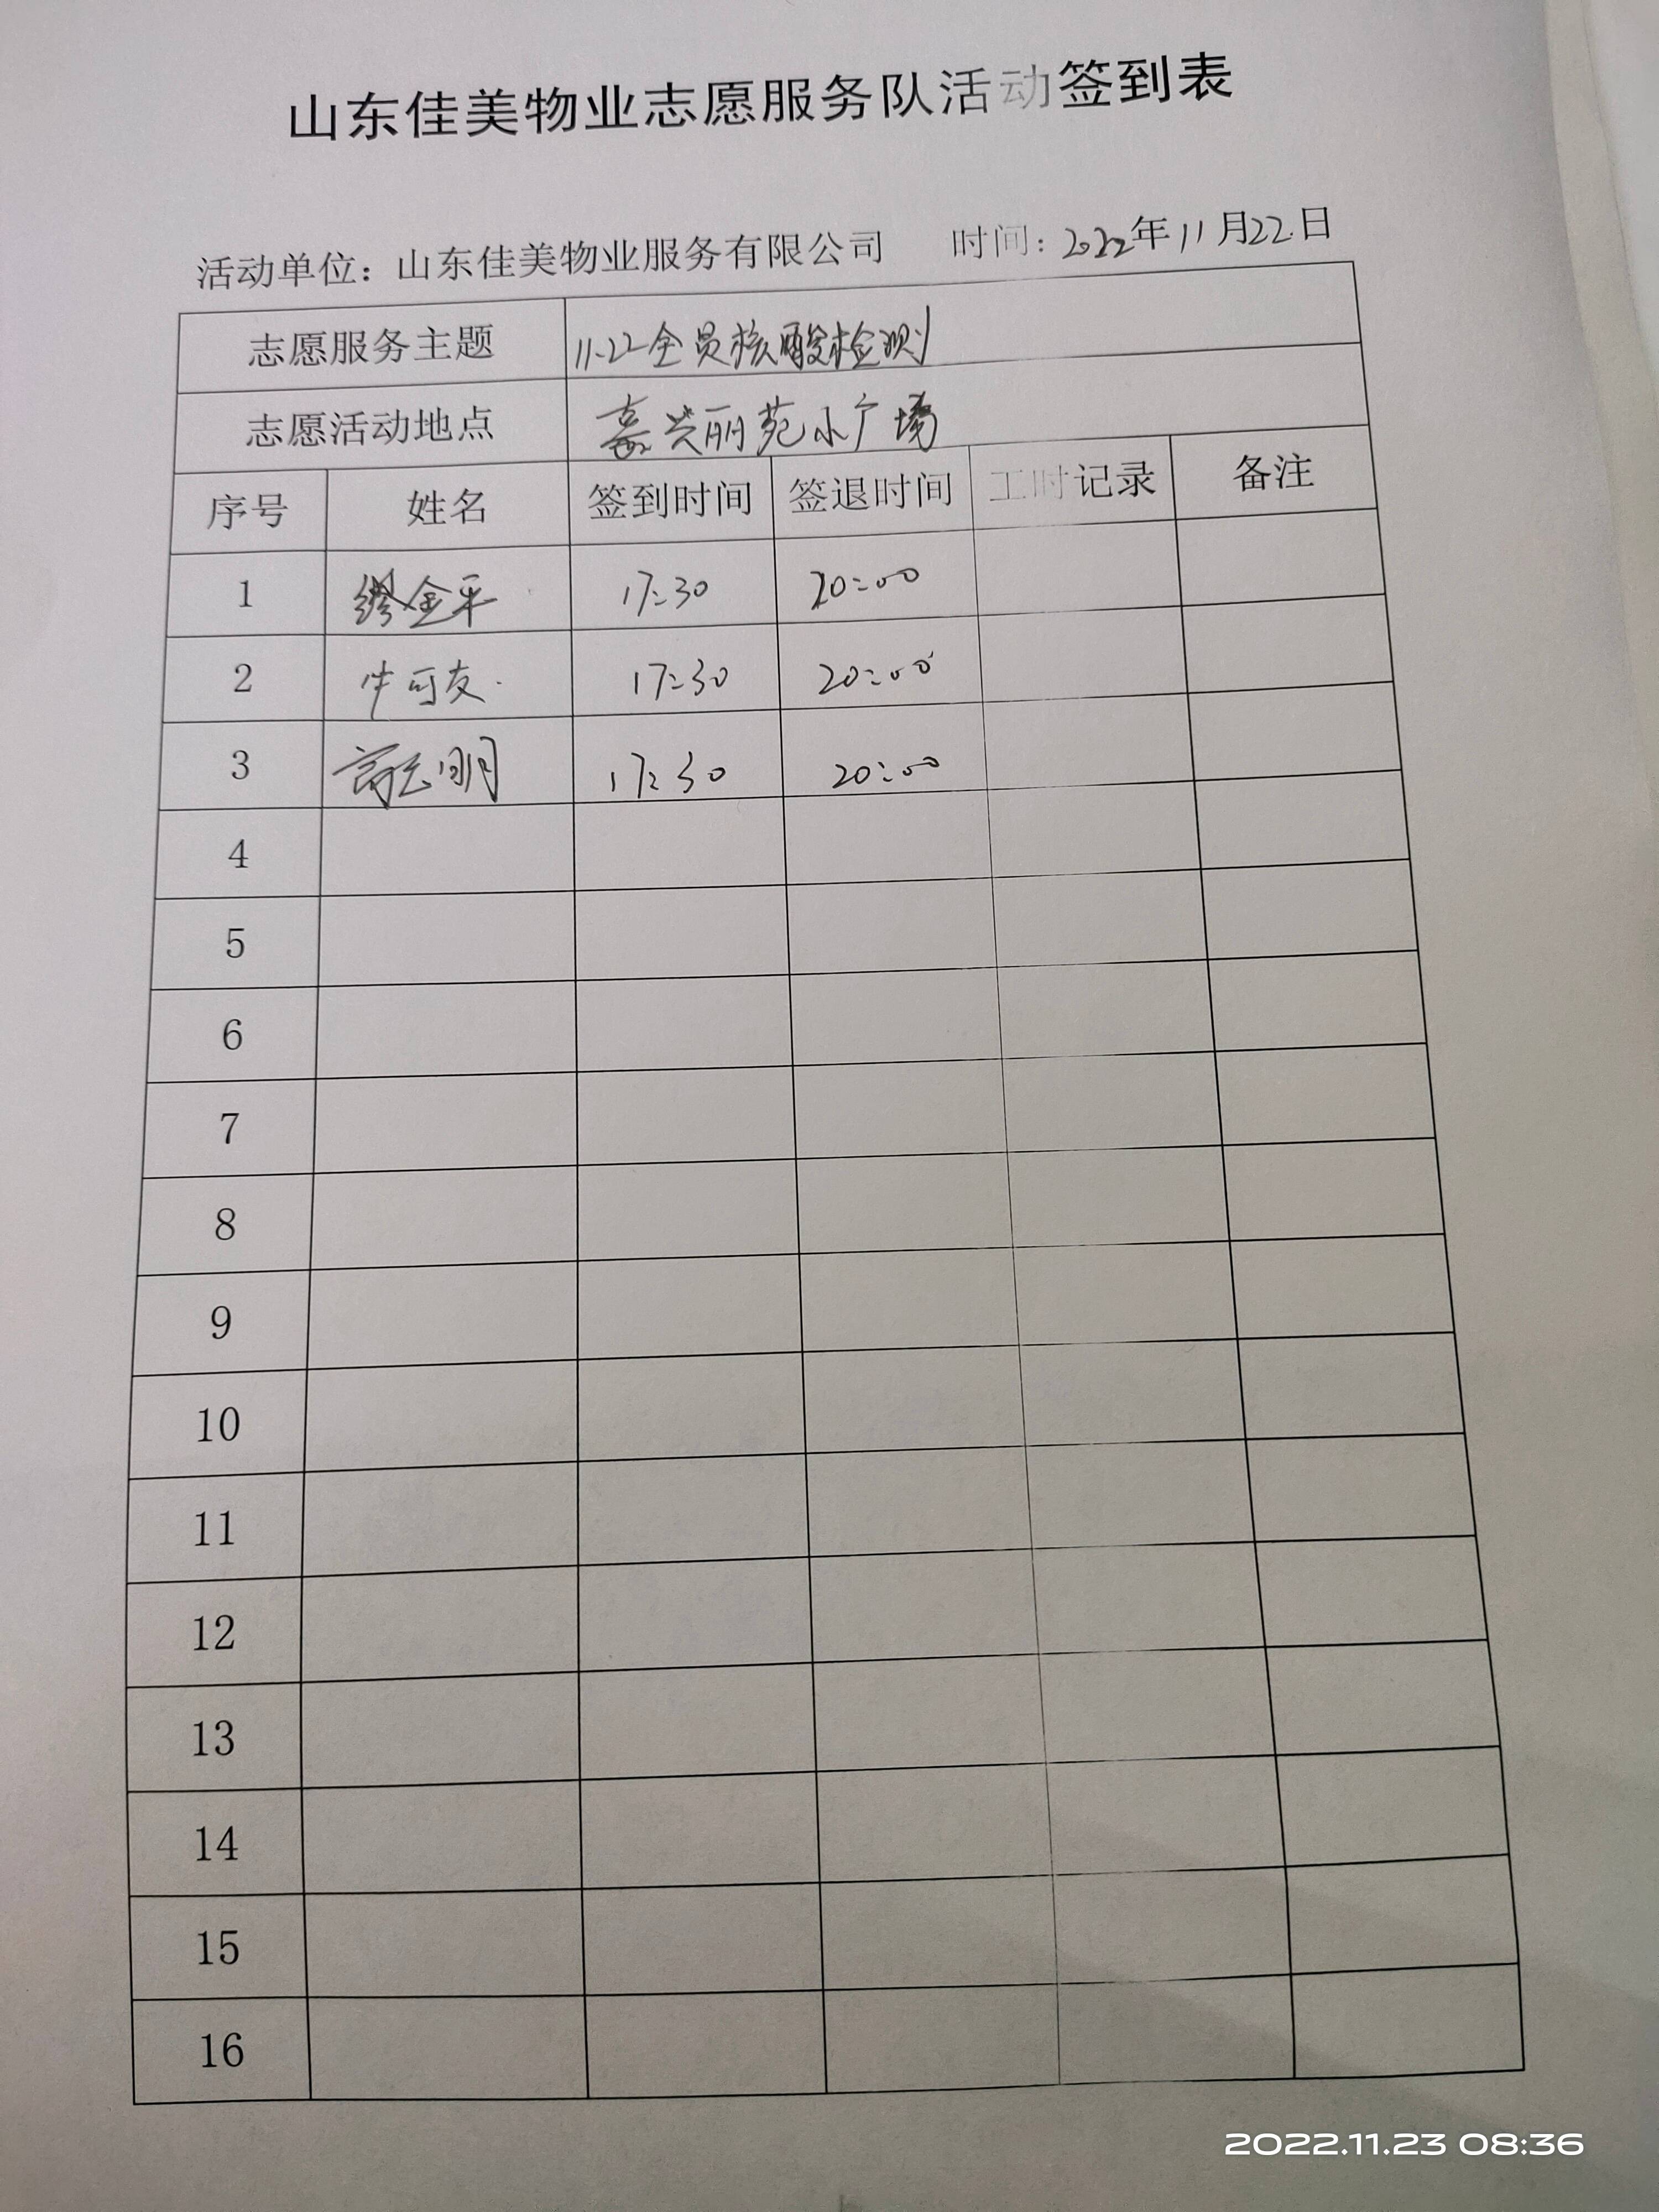 山东佳美物业志愿服务队活动签到表
活动单位：山东佳美物业服务有限公司 时间：2022年11月22日
志愿服务主题 11.22全员核酸检测
志愿活动地点 嘉兴丽苑小广场
序号 姓名 签到时间 签退时间 工时记录 备注
1 金平 17:30 20:00
2 牛可友 17:30 20:00
3 高 明 17:30 20:00
4
5
6
7
8
9
10
11
12
13
14
15
16
2022.11.23 08:36